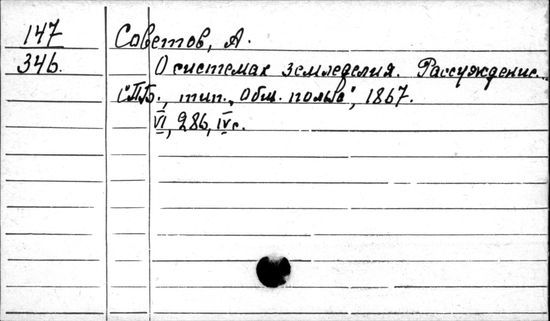 147 Советов, А.
346. О системах земледелия. Рассуждение.
СПБ., тип. "Общ. польза", 1867.
VI, 286, IV с.